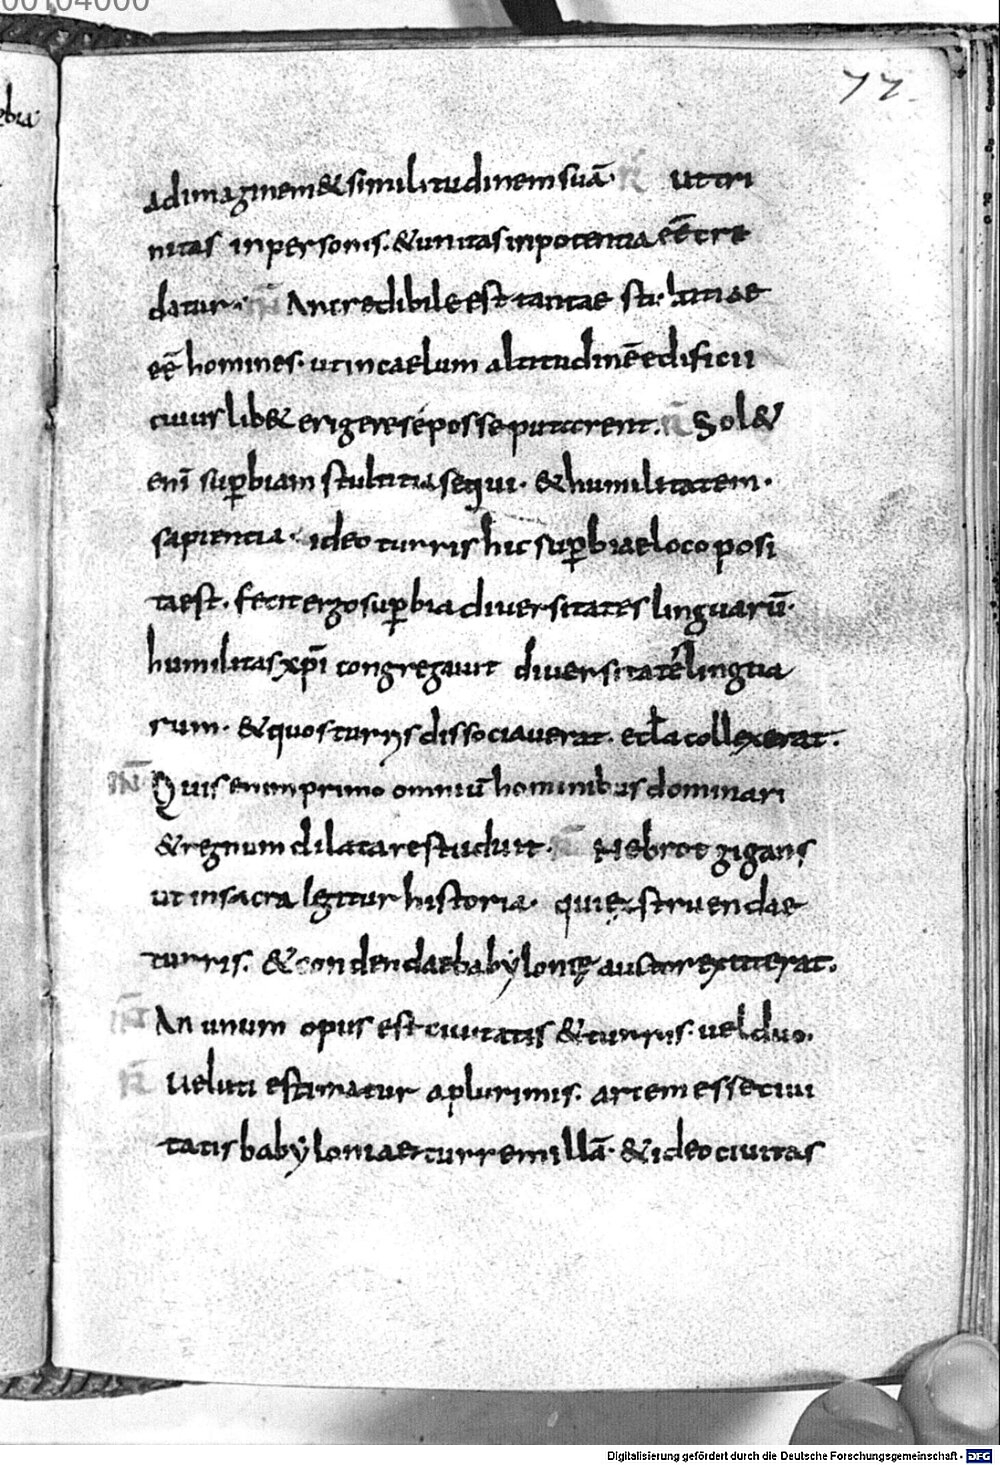 00104000
ebra
77.
ad imaginem & similitudinem suā· R̄ ut tri
nitas in personis· & unitas in potentia eē cre
datur·· iñ An credibile est tantae stultitiae
eē homines· ut in caelum altitudinē edificii
cuius lib& erigere se posse putarent· R̄ Sol&
enī sup̄biam stultitia sequi· & humilitatem·
sapientia· ideo turris hic sup̄biae loco posi
ta est· fecit ergo sup̄bia diversitates linguarū·
humilitas xp̄i congregavit diversitatē lingua
rum· & quos turris dissociaverat· eccl̄a collexerat·
iñ Quis enim primo omniū hominibus dominari
& regnum dilatare studuit· R̄ Nebrot gigans
ut in sacra legitur historia· qui & struendae
turris· & condendae babylonię auctor extiterat·
iñ An unum opus est civitatis & turris· vel duo·
R̄ Veluti estimatur a plurimis· artem esse civi
tatis babyloniae turrem illā· & ideo civitas
Digitalisierung gefördert durch die Deutsche Forschungsgemeinschaft - DFG